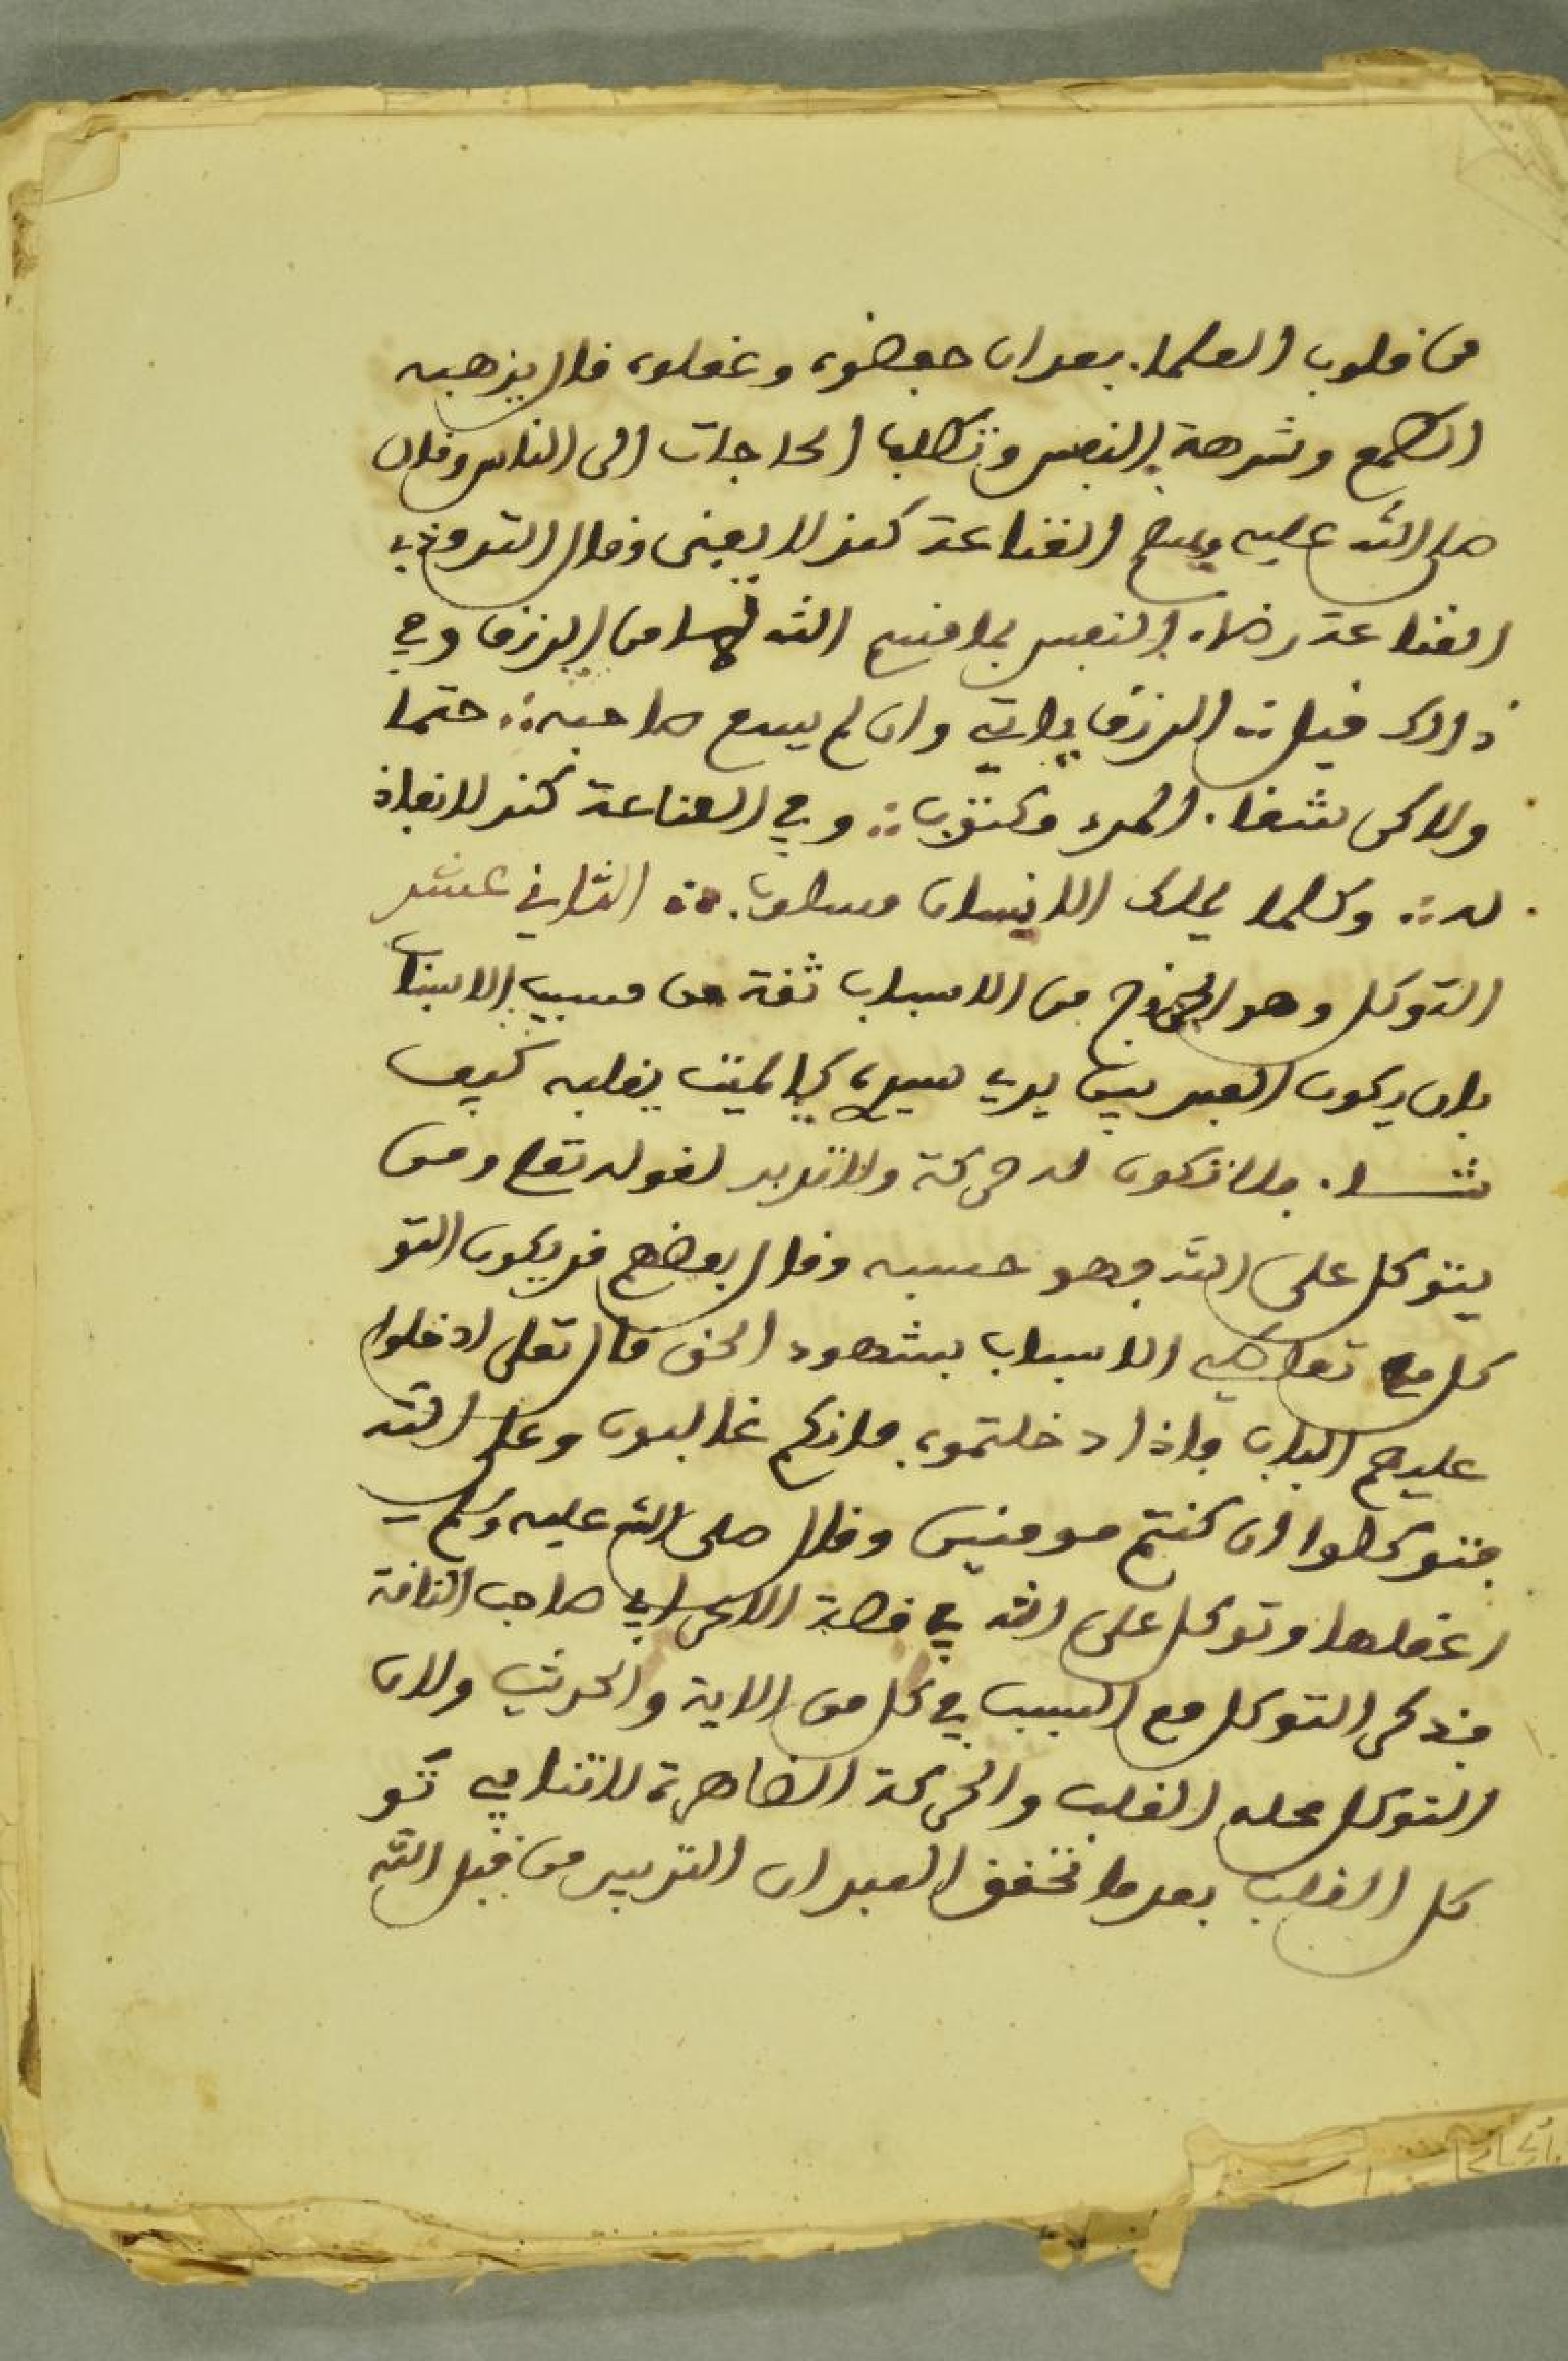 من قلوب العلماء بعد ان حفظوه وعقلوه قال يذهبه
الطمع وشرهة النفس وتطلب الحاجات الى الناس وقال
صلى الله عليه وسلم القناعة كنز لا يفنى وقال
القناعة رضاء النفس بما قسم الله لها من الرزق وفي
ذالك قيل الرزق ياتي وان لم يسع صاحبه حتما
ولاكن شقاء المرء مكتوب وفي القناعة كنز لا نفاذ
له وكلما يملك الانسان مسلوب الثاني عشر
التوكل وهو الخروج من الاسباب ثقة من مسبب الاسباب
بان يكون العبد بين يدي سيده كالميت يقلبه كيف
شاء فلا تكون له حركة ولا تدبير لقوله تعلى ومن
يتوكل على الله فهو حسبه وقال بعضهم قد يكون التو
كل مع تعاطي الاسباب بشهود الحق قال تعلى ادخلوا
عليهم الباب فاذا دخلتموه فانكم غالبون وعلى الله
فتوكلوا ان كنتم مومنين وقال صلى الله عليه وسلم
اعقلها وتوكل على الله في قصة الاعرابي صاحب الناقة
فذكر التوكل مع السبب في كل من الاية والحديث ولان
التوكل محله القلب والحركة الظاهرة لا تنافي تو
كل القلب بعد ما تحقق العبد ان التدبير من قبل الله